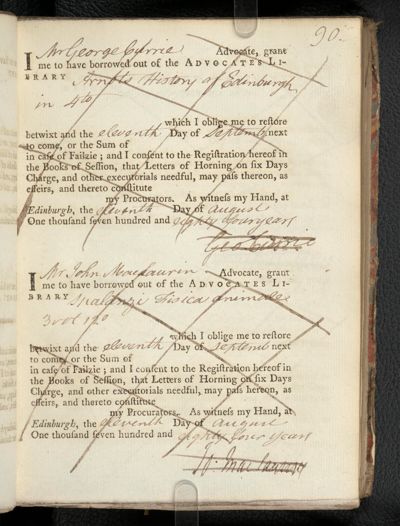 90.
I Mr George Currie Advocate, grant
me to have borrowed out of the ADVOCATES LI-
BRARY Arnots History of Edinburgh
in 4to
which I oblige me to reſtore
betwixt and the eleventh Day of Septemb next
to come, or the Sum of
in caſe of Failzie; and I conſent to the Regiſtration hereof in
the Books of Seſſion, that Letters of Horning on ſix Days
Charge, and other executorials needful, may paſs thereon, as
effeirs, and thereto conſtitute
my Procurators. As witneſs my Hand, at
Edinburgh, the eleventh Day of August
One thouſand ſeven hundred and eighty four years
Geo Currie
I Mr John Maclaurin Advocate, grant
me to have borrowed out of the ADVOCATES LI-
BRARY Spalanzi fisica animale
3 vol
which I oblige me to reſtore
betwixt and the eleventh Day of Septemb next
to come, or the Sum of
in caſe of Failzie; and I conſent to the Regiſtration hereof in
the Books of Seſſion, that Letters of Horning on ſix Days
Charge, and other executorials needful, may paſs hereon, as
effeirs, and thereto conſtitute
my Procurators. As witneſs my Hand, at
Edinburgh, the eleventh Day of August
One thouſand ſeven hundred and eighty four years
Jo. MacLaurin